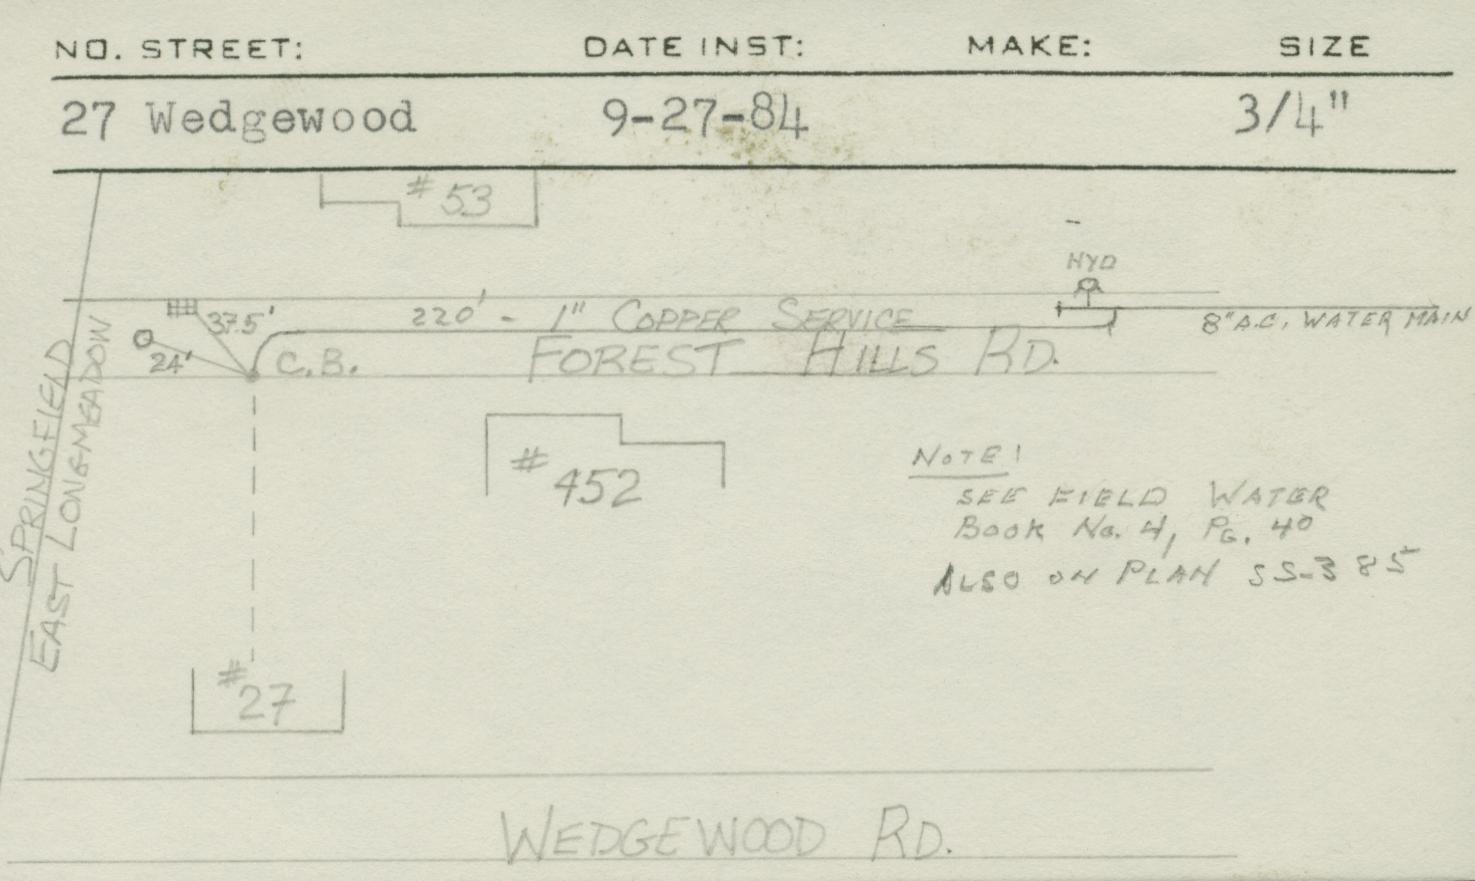 NO. STREET: DATE INST: MAKE: SIZE
27 Wedgewood 9-27-84 3/4"
#53
HYD
37.5' 220' - 1" COPPER SERVICE 8" A.C. WATER MAIN
24' C.B. FOREST HILLS RD.
SPRINGFIELD
EAST LONGMEADOW
#452
NOTE!
SEE FIELD WATER
BOOK NO. 4, PG. 40
ALSO ON PLAN SS-385
#27
WEDGEWOOD RD.